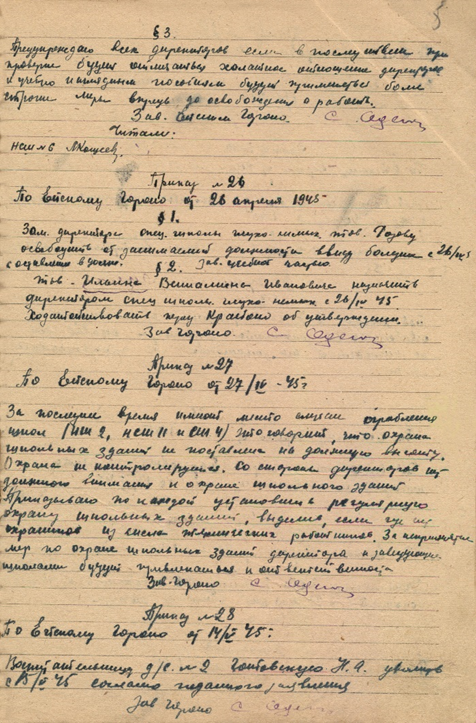 § 3.
Предупреждаю всех директоров если в последствии при
проверке будут отмечаться халатное отношение директоров
к учебно наглядным пособиям будут применяться более
строгие меры вплоть до освобождения с работы.
Зав. Ейским Гороно
Читали:
НСШ № 6
Приказ № 26
По Ейскому Гороно от 26 апреля 1945
§ 1.
Зам. директора спец. школы глухо-немых тов.
освободить от занимаемой должности ввиду болезни с 26/IV 45
с оставлен Зав. учебной частью
§ 2.
тов. Ильина Вениамина Ивановича назначить
директором спец школы глухо-немых с 26/IV 45.
Ходатайствовать перед Крайоно об утверждении.
Зав Гороно.
Приказ № 27
По Ейскому Гороно от 27/IV - 45 г
За последнее время имеют место случаи ограбления
школ (НСШ 2, НСШ 11 и СШ 4) Это говорит, что охрана
школьных зданий не поставлена на должную высоту.
Охрана не контролируется. Со стороны директоров нет
должного внимания к охране школьного здания
Приказываю по каждой установить регулярную
охрану школьных зданий, выделив, если где нет
охранников из числа технических работников. За непринятие
мер по охране школьных зданий директора и заведующие
школами будут привлекаться к ответственности
Зав. Гороно
Приказ № 28
По Ейскому Гороно от 14/ 45 г.
Воспитательницу д/с. № 2 Н. А. уволить
с 15/ 45 согласно поданного заявления
Зав Гороно